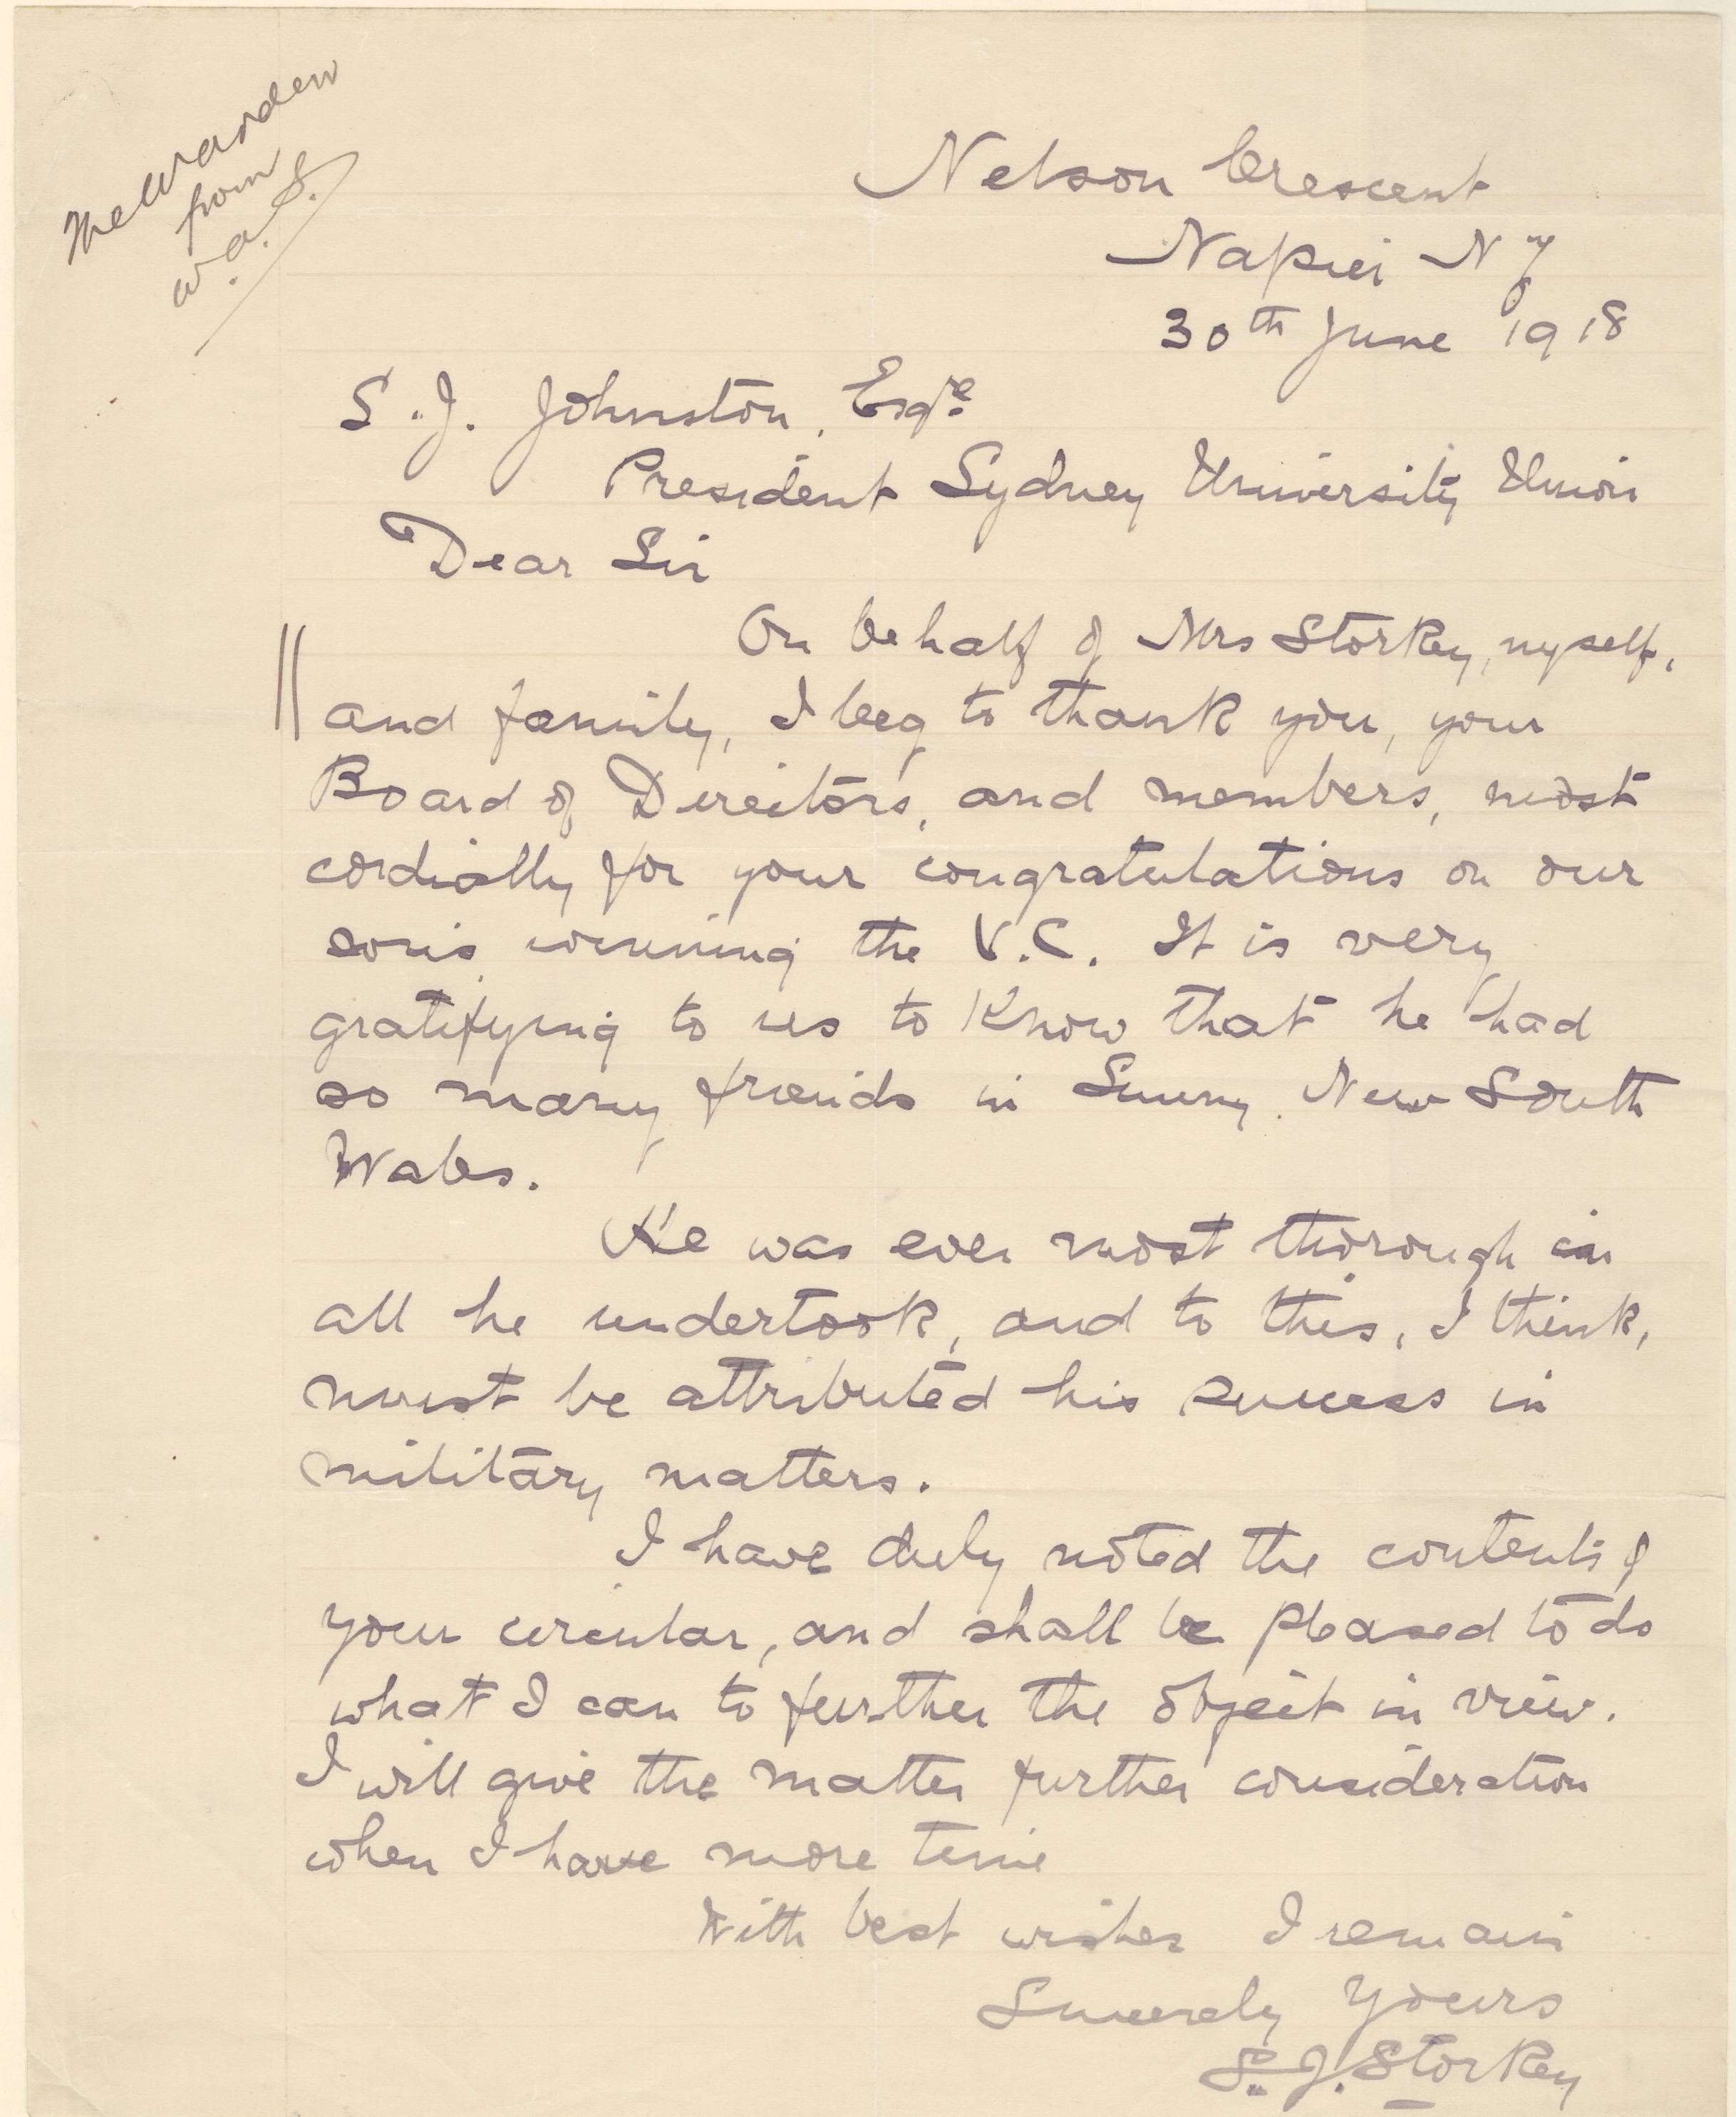 The Warden
from
W.A.S.
Nelson Crescent
Napier N Z
30th June 1918
S.J. Johnston, Esqre
President Sydney University Union
Dear Sir
On behalf of Mrs Storkey, myself,
and family, I beg to thank you, your
Board of Directors, and members, most
cordially for your congratulations on our
son's winning the V.C. It is very
gratifying to us to know that he had
so many friends in Sunny New South
Wales.
He was ever most thorough in
all he undertook, and to this, I think,
must be attributed his success in
military matters.
I have duly noted the contents of
your circular, and shall be pleased to do
what I can to further the object in view.
I will give the matter further consideration
when I have more time
With best wishes I remain
Sincerely Yours
S. J. Storkey